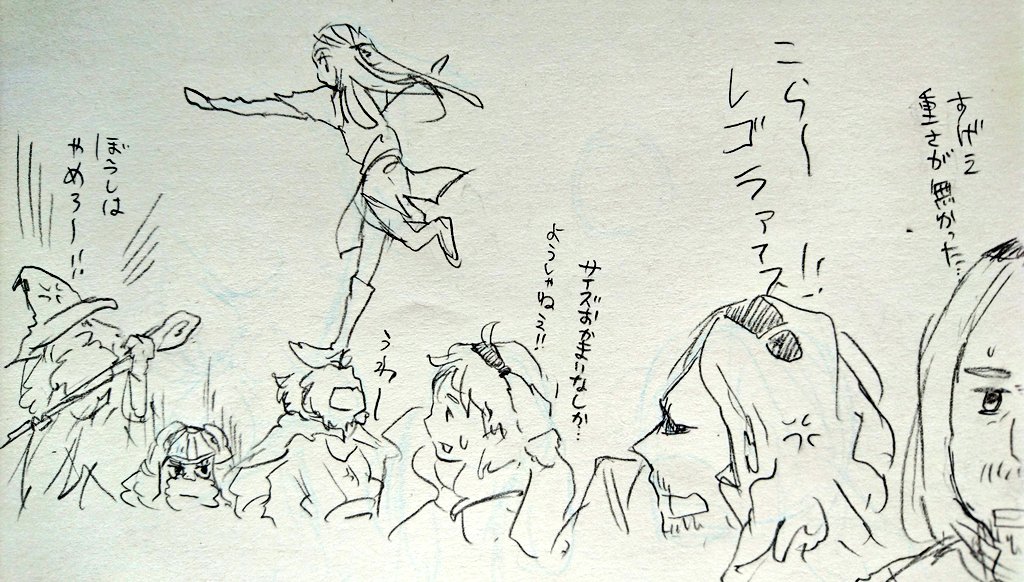 すげえ
重さが無かった…
こらー
レゴラァァス!!
サイズおかまいなしか…
ようしゃねぇ!!
うわー
ぼうしは
やめろー!!